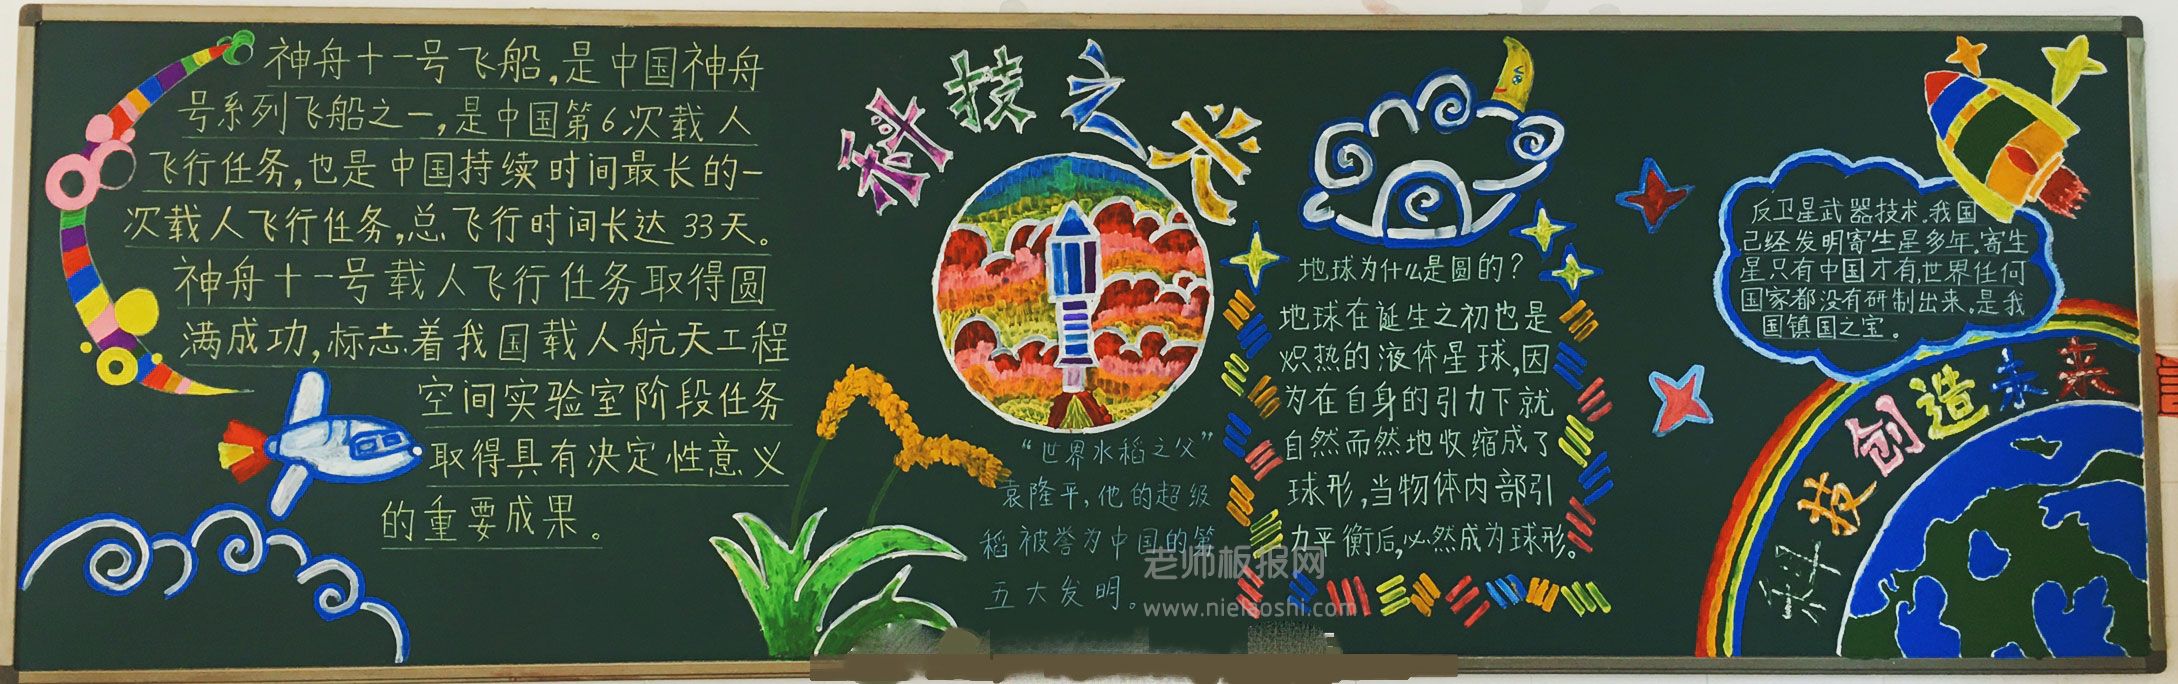 神舟十一号飞船,是中国神舟
号系列飞船之一,是中国第6次载人
飞行任务,也是中国持续时间最长的一
次载人飞行任务,总飞行时间长达33天。
神舟十一号载人飞行任务取得圆
满成功,标志着我国载人航天工程
空间实验室阶段任务
取得具有决定性意义
的重要成果。
科技之光
“世界水稻之父”
袁隆平,他的超级
稻被誉为中国的第
五大发明。
地球为什么是圆的?
地球在诞生之初也是
炽热的液体星球,因
为在自身的引力下就
自然而然地收缩成了
球形,当物体内部引
力平衡后,必然成为球形。
反卫星武器技术.我国
己经发明寄生星多年.寄生
星只有中国才有,世界任何
国家都没有研制出来.是我
国镇国之宝。
科技创造未来
老师板报网
www.nielaoshi.com